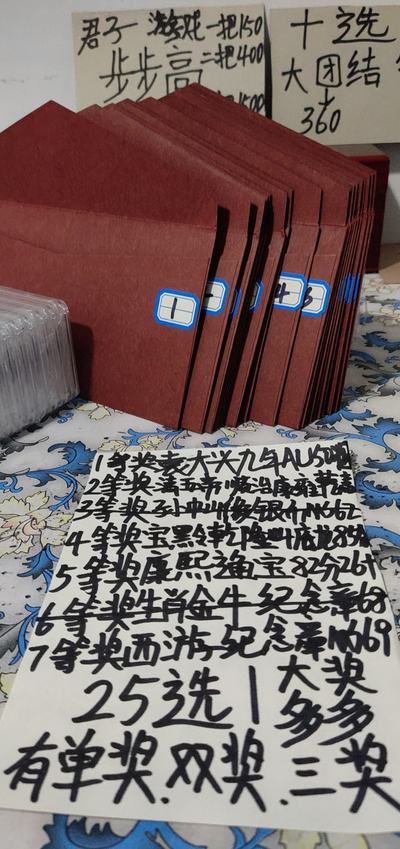 君子一 游戏 一把150
步步高 二把400
十选
大团结
360
1
4
3
1等奖袁大头九年AU50
2等奖五帝顺治康雍乾嘉
3等奖孙中山像银币MS62
4等奖宝黑钱乾隆
5等奖康熙通宝82分26+
6等奖生肖金牛纪念章68
7等奖西游纪念章69
25选1 大奖多多
有单奖.双奖.三奖